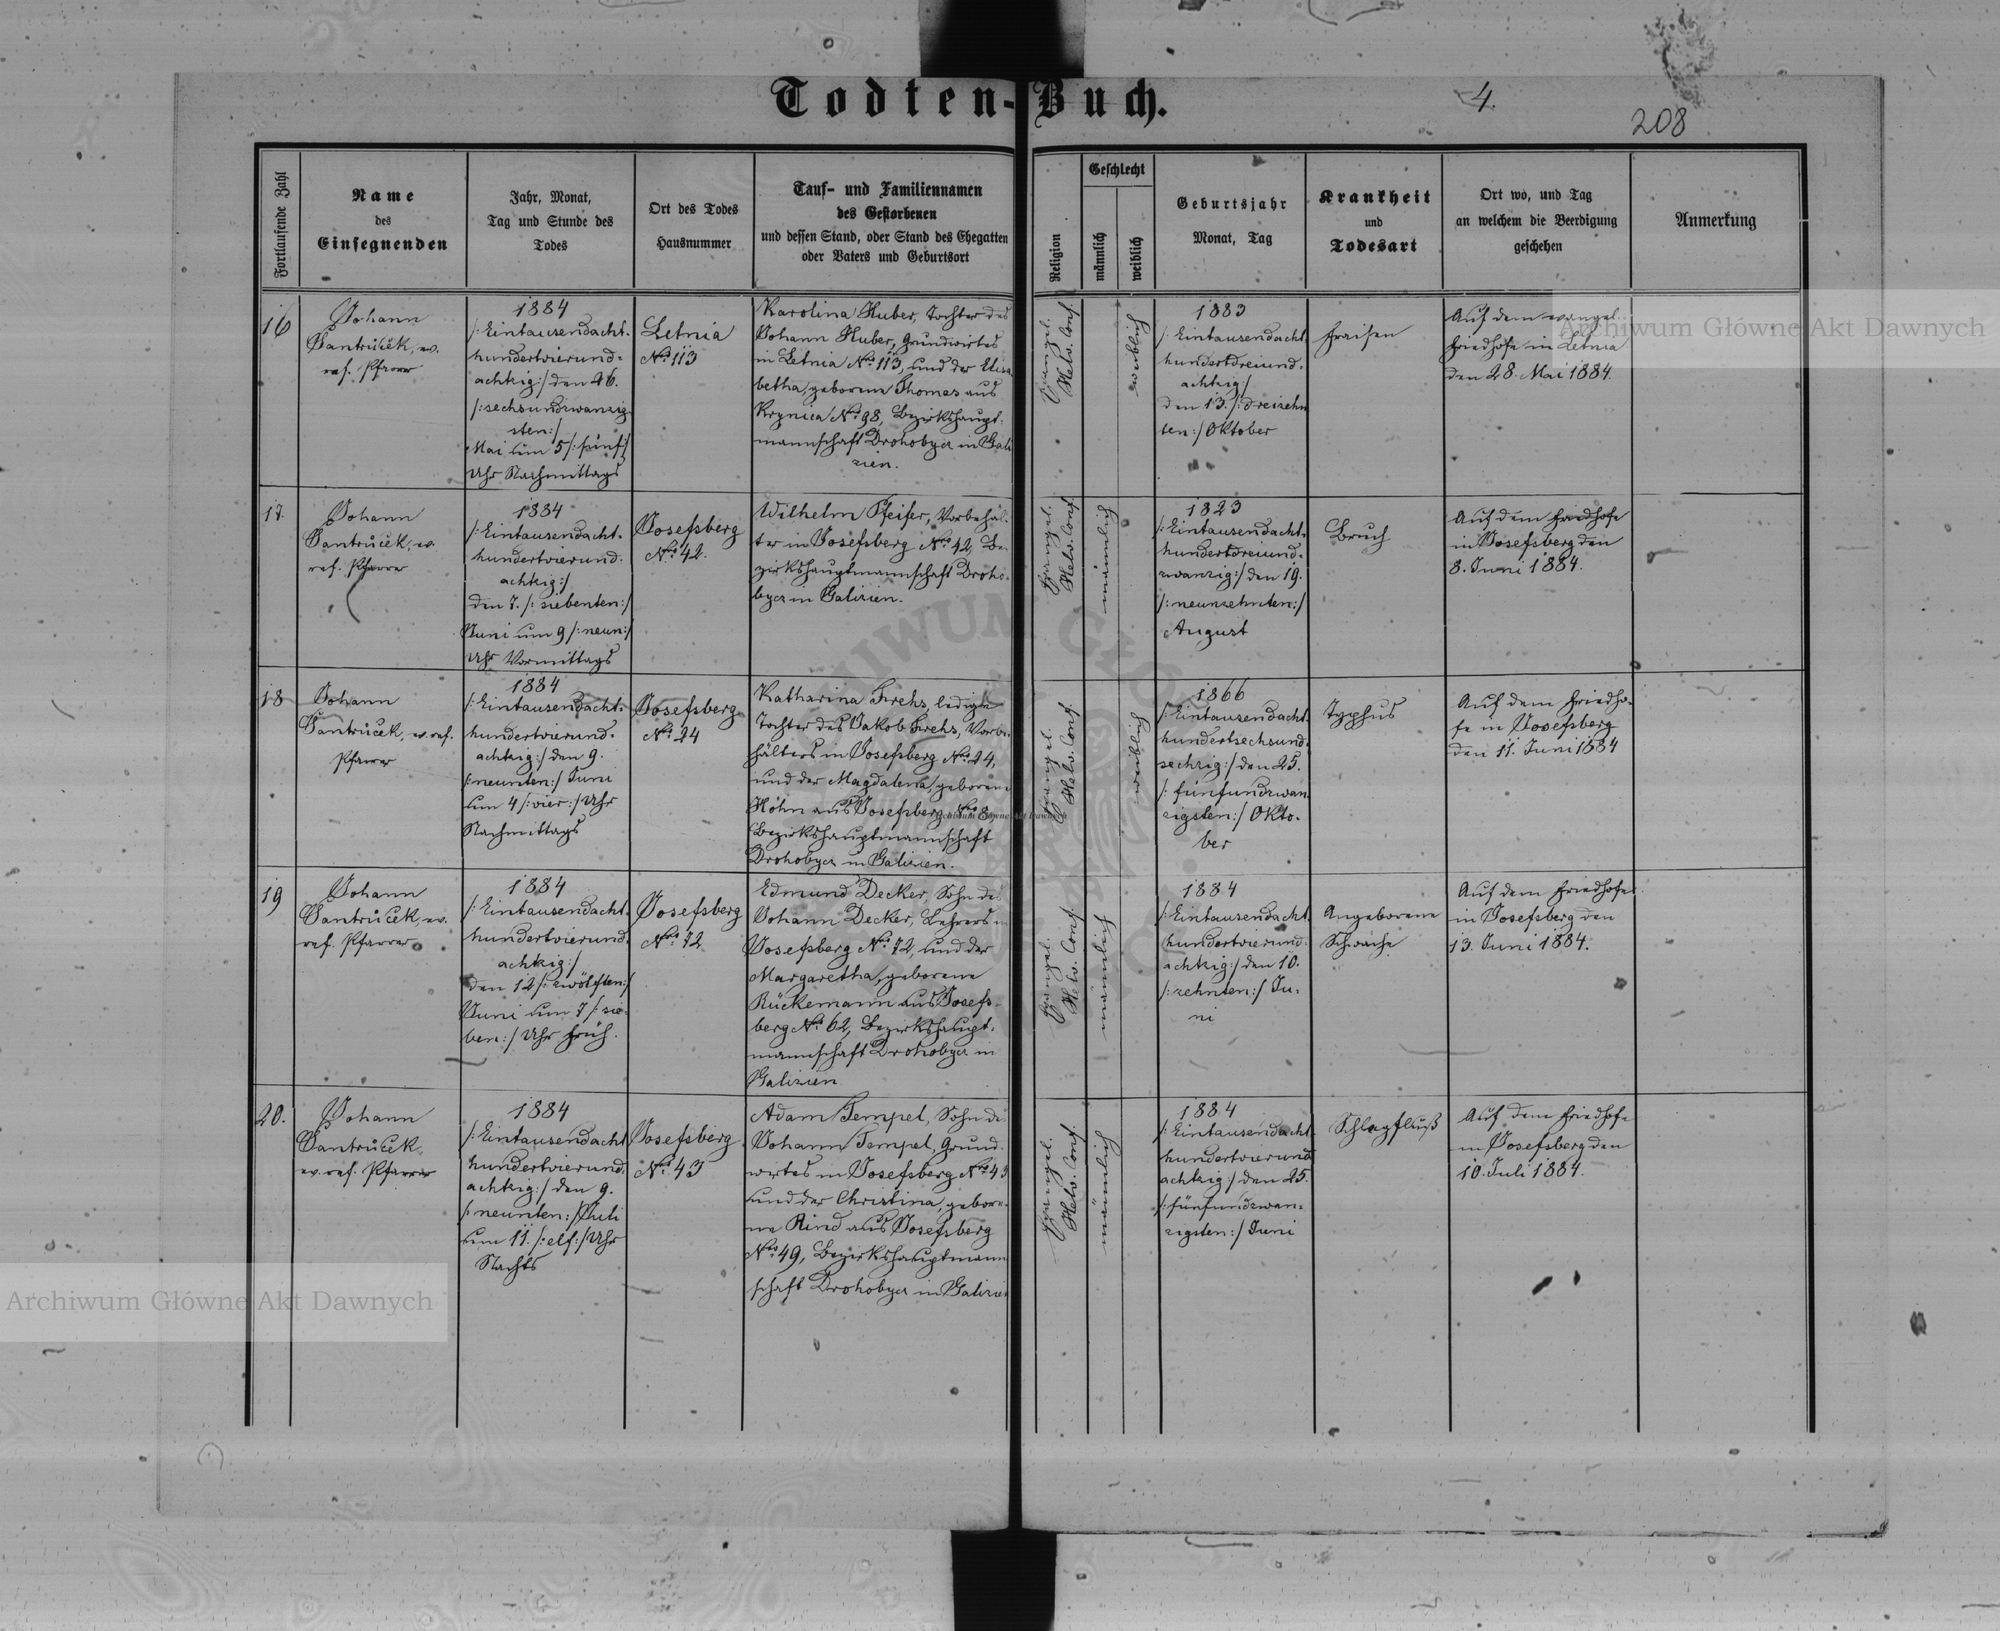 Todten-Buch.
4.
208
Fortlaufende Zahl
Name
des
Einsegnenden
Jahr, Monat,
Tag und Stunde des
Todes
Ort des Todes
Hausnummer
Tauf- und Familiennamen
des Gestorbenen
und dessen Stand, oder Stand des Ehegatten
oder Vaters und Geburtsort
Religion
Geschlecht
männlich
weiblich
Geburtsjahr
Monat, Tag
Krankheit
und
Todesart
Ort wo, und Tag
an welchem die Beerdigung
geschehen
Anmerkung
16
Johann
Šantrůček, ev.
ref. Pfarrer
1884
/:Eintausendacht-
hundertvierund-
achtzig:/ den 26.
/:sechsundzwanzig-
sten:/
Mai um 5 /:fünf:/
Uhr Nachmittags
Letnia
No. 113
Karolina Huber, Tochter des
Johann Huber, Grundwirtes
in Letnia No. 113, und der Elisa
betha, geboren Thomas aus
Krynica No. 98, Bezirkshaupt-
mannschaft Drohobycz in Gali
zien.
Evangel.
Helv. Conf.
weiblich
1883
/:Eintausendacht
hundertdreiund-
achtzig:/
den 13. /:dreizehn
ten:/ Oktober
Fraisen
Auf dem evangel.
Friedhofe in Letnia
den 28. Mai 1884.
17.
Johann
Šantrůček, ev.
ref. Pfarrer
1884
/:Eintausendacht-
hundertvierund-
achtzig:/
den 7. /:siebenten:/
Juni um 9 /:neun:/
Uhr Vormittags
Josefsberg
No. 42.
Wilhelm Pfeifer, Vorbehäl-
ter in Josefsberg No. 42, Be-
zirkshauptmannschaft Droho-
bycz in Galizien.
Evangel.
Helv. Conf.
männlich
1823
/:Eintausendacht-
hundertdreiund-
zwanzig:/ den 19.
/:neunzehnten:/
August
Bruch
Auf dem Friedhofe
in Josefsberg den
8. Juni 1884.
18
Johann
Šantrůček, ev. ref.
Pfarrer
1884
/:Eintausendacht-
hundertvierund-
achtzig:/ den 9.
/:neunten:/ Juni
um 4 /:vier:/ Uhr
Nachmittags
Josefsberg
No. 24
Katharina Frehs, ledige
Tochter des Jakob Frehs, Vorbe-
hälters in Josefsberg No. 24,
und der Magdalena, geborene
Höhn aus Josefsberg No. 8,
Bezirkshauptmannschaft
Drohobycz in Galizien.
Evangel.
Helv. Conf.
weiblich
1866
/:Eintausendacht
hundertsechsund-
sechzig:/ den 25.
/:fünfundzwan-
zigsten:/ Okto-
ber
Typhus
Auf dem Friedho-
fe in Josefsberg
den 11. Juni 1884
19
Johann
Šantrůček, ev.
ref. Pfarrer
1884
/:Eintausendacht-
hundertvierund-
achtzig:/
den 12 /:zwölften:/
Juni um 7 /:sie-
ben:/ Uhr früh.
Josefsberg
No. 72
Edmund Decker, Sohn des
Johann Decker, Lehrers in
Josefsberg No. 72, und der
Margaretha, geborene
Rückemann aus Josefs-
berg No. 62, Bezirkshaupt-
mannschaft Drohobycz in
Galizien
Evangel.
Helv. Conf.
männlich
1884
/:Eintausendacht
hundertvierund-
achtzig:/ den 10.
/:zehnten:/ Ju-
ni
Angeborene
Schwäche
Auf dem Friedhofe
in Josefsberg den
13. Juni 1884.
20.
Johann
Šantrůček,
ev. ref. Pfarrer
1884
/:Eintausendacht
hundertvierund-
achtzig:/ den 9.
/:neunten:/ Juli
um 11. /:elf:/ Uhr
Nachts
Josefsberg
No. 43
Adam Tempel, Sohn de
Johann Tempel, Grund-
wirtes in Josefsberg No. 43
und der Christina, gebore-
ne Rind aus Josefsberg
No. 49, Bezirkshauptmann
schaft Drohobycz in Galizien
Evangel.
Helv. Conf.
männlich
1884
/:Eintausendacht-
hundertvierund
achtzig:/ den 25.
/:fünfundzwan-
zigsten:/ Juni
Schlagfluß
Auf dem Friedhofe
in Josefsberg den
10. Juli 1884.
Archiwum Główne Akt Dawnych
Archiwum Główne Akt Dawnych
Archiwum Główne Akt Dawnych